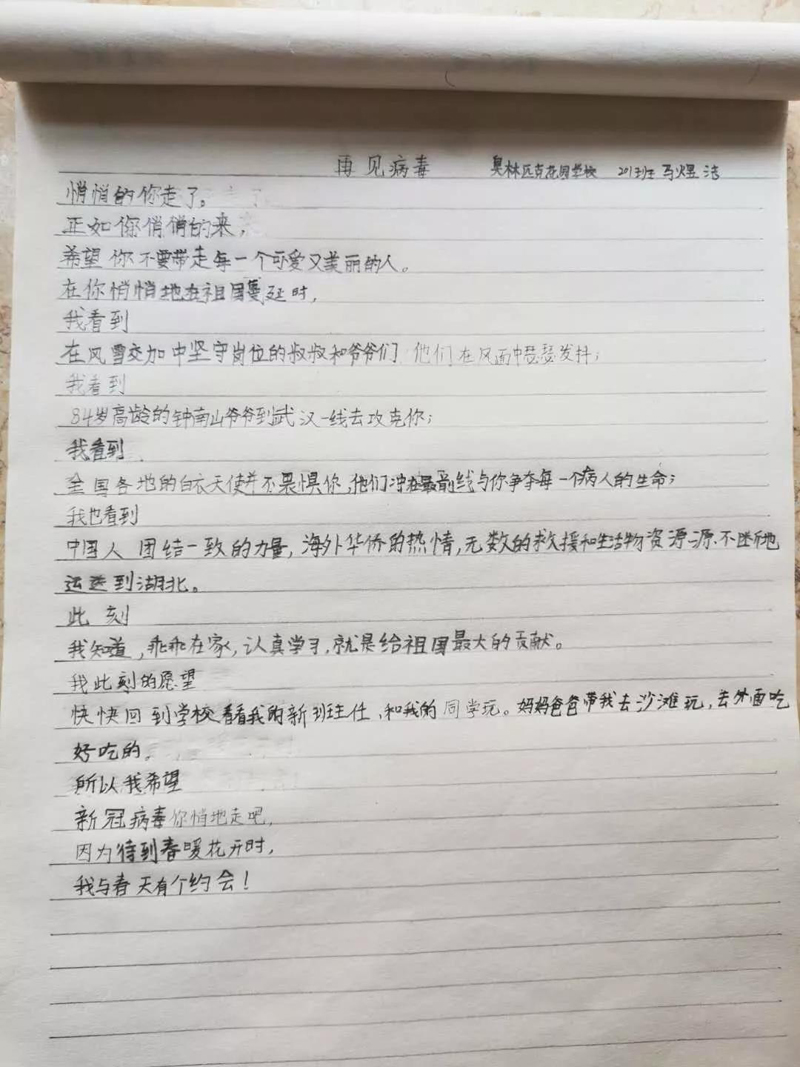 再见病毒 奥林匹克花园学校 201班 马煜洁
悄悄的你走了。
正如你悄悄的来,
希望你不要带走每一个可爱又美丽的人。
在你悄悄地在祖国蔓延时,
我看到
在风雪交加中坚守岗位的叔叔和爷爷们 他们在风雨中瑟瑟发抖;
我看到
84岁高龄的钟南山爷爷到武汉一线去攻克你;
我看到
全国各地的白衣天使并不畏惧你,他们冲在最前线与你争夺每一个病人的生命;
我也看到
中国人 团结一致的力量,海外华侨的热情,无数的救援和生活物资源源不断地
运送到湖北。
此刻
我知道,乖乖在家,认真学习,就是给祖国最大的贡献。
我此刻的愿望
快快回到学校看看我的新班主任,和我的同学玩。妈妈爸爸带我去沙滩玩,去外面吃
好吃的。
所以我希望
新冠病毒你悄地走吧,
因为待到春暖花开时,
我与春天有个约会!